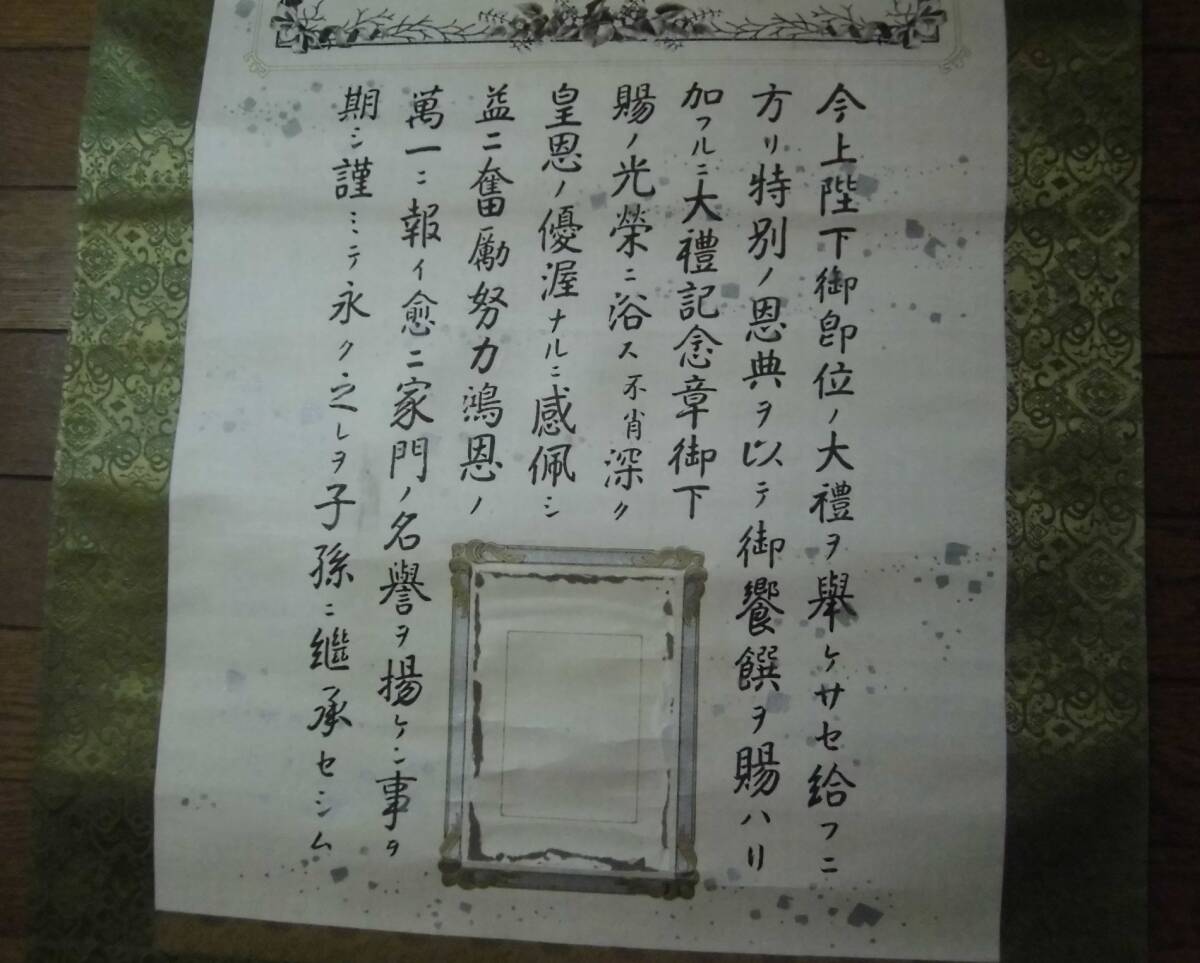 今上陛下御卽位ノ大禮ヲ舉ケサセ給フニ
方リ特別ノ恩典ヲ以テ御饗饌ヲ賜ハリ
加フルニ大禮記念章御下
賜ノ光榮ニ浴ス不肖深ク
皇恩ノ優渥ナルニ感佩シ
益ニ奮励努力鴻恩ノ
萬一ニ報イ愈ニ家門ノ名譽ヲ揚ケン事ヲ
期シ謹ミテ永ク之レヲ子孫ニ継承セシム